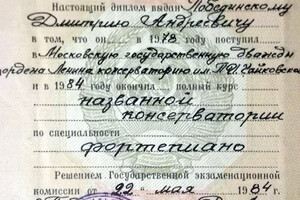 Настоящий диплом выдан Лобзинскому
Дмитрию Андреевичу
в том, что он в 1979 поступил
в Московскую государственную дважды
ордена Ленина консерваторию им. П. И. Чайковского
и в 1984 окончил полный курс
названной
консерватории
по специальности
фортепиано
Решением Государственной экзаменационной
комиссии от 22 мая 1984 г.